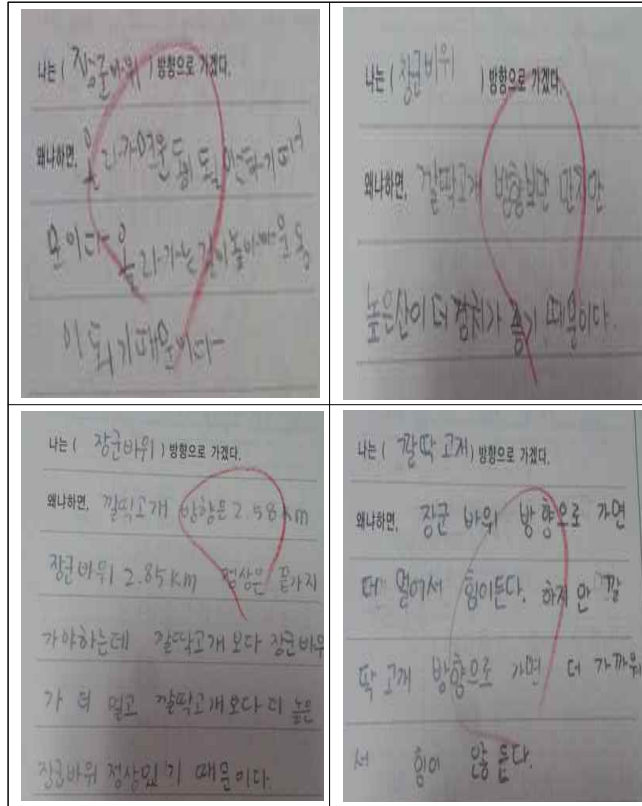 나는 ( 장군바위 ) 방향으로 가겠다.
왜냐하면,
이 되기때문이다
나는 ( 장군바위 ) 방향으로 가겠다.
왜냐하면, 깔딱고개 방향보단 만지만
높은산이 더 경치가 좋기 때문이다.
나는 ( 장군바위 ) 방향으로 가겠다.
왜냐하면, 깔딱고개 방향은 2.58km
장군바위 2.85km 정상은 끝가지
가야하는데 깔딱고개 보다 장군바위
가 더 멀고 깔딱고개보다 더 높은
장군바위 정상있기 때문이다.
나는 ( 깔딱고개 ) 방향으로 가겠다.
왜냐하면, 장군 바위 방향으로 가면
더 멀어서 힘이든다. 하지만 깔
딱고개 방향으로 가면 더 가까워
서 힘이 않 든다.